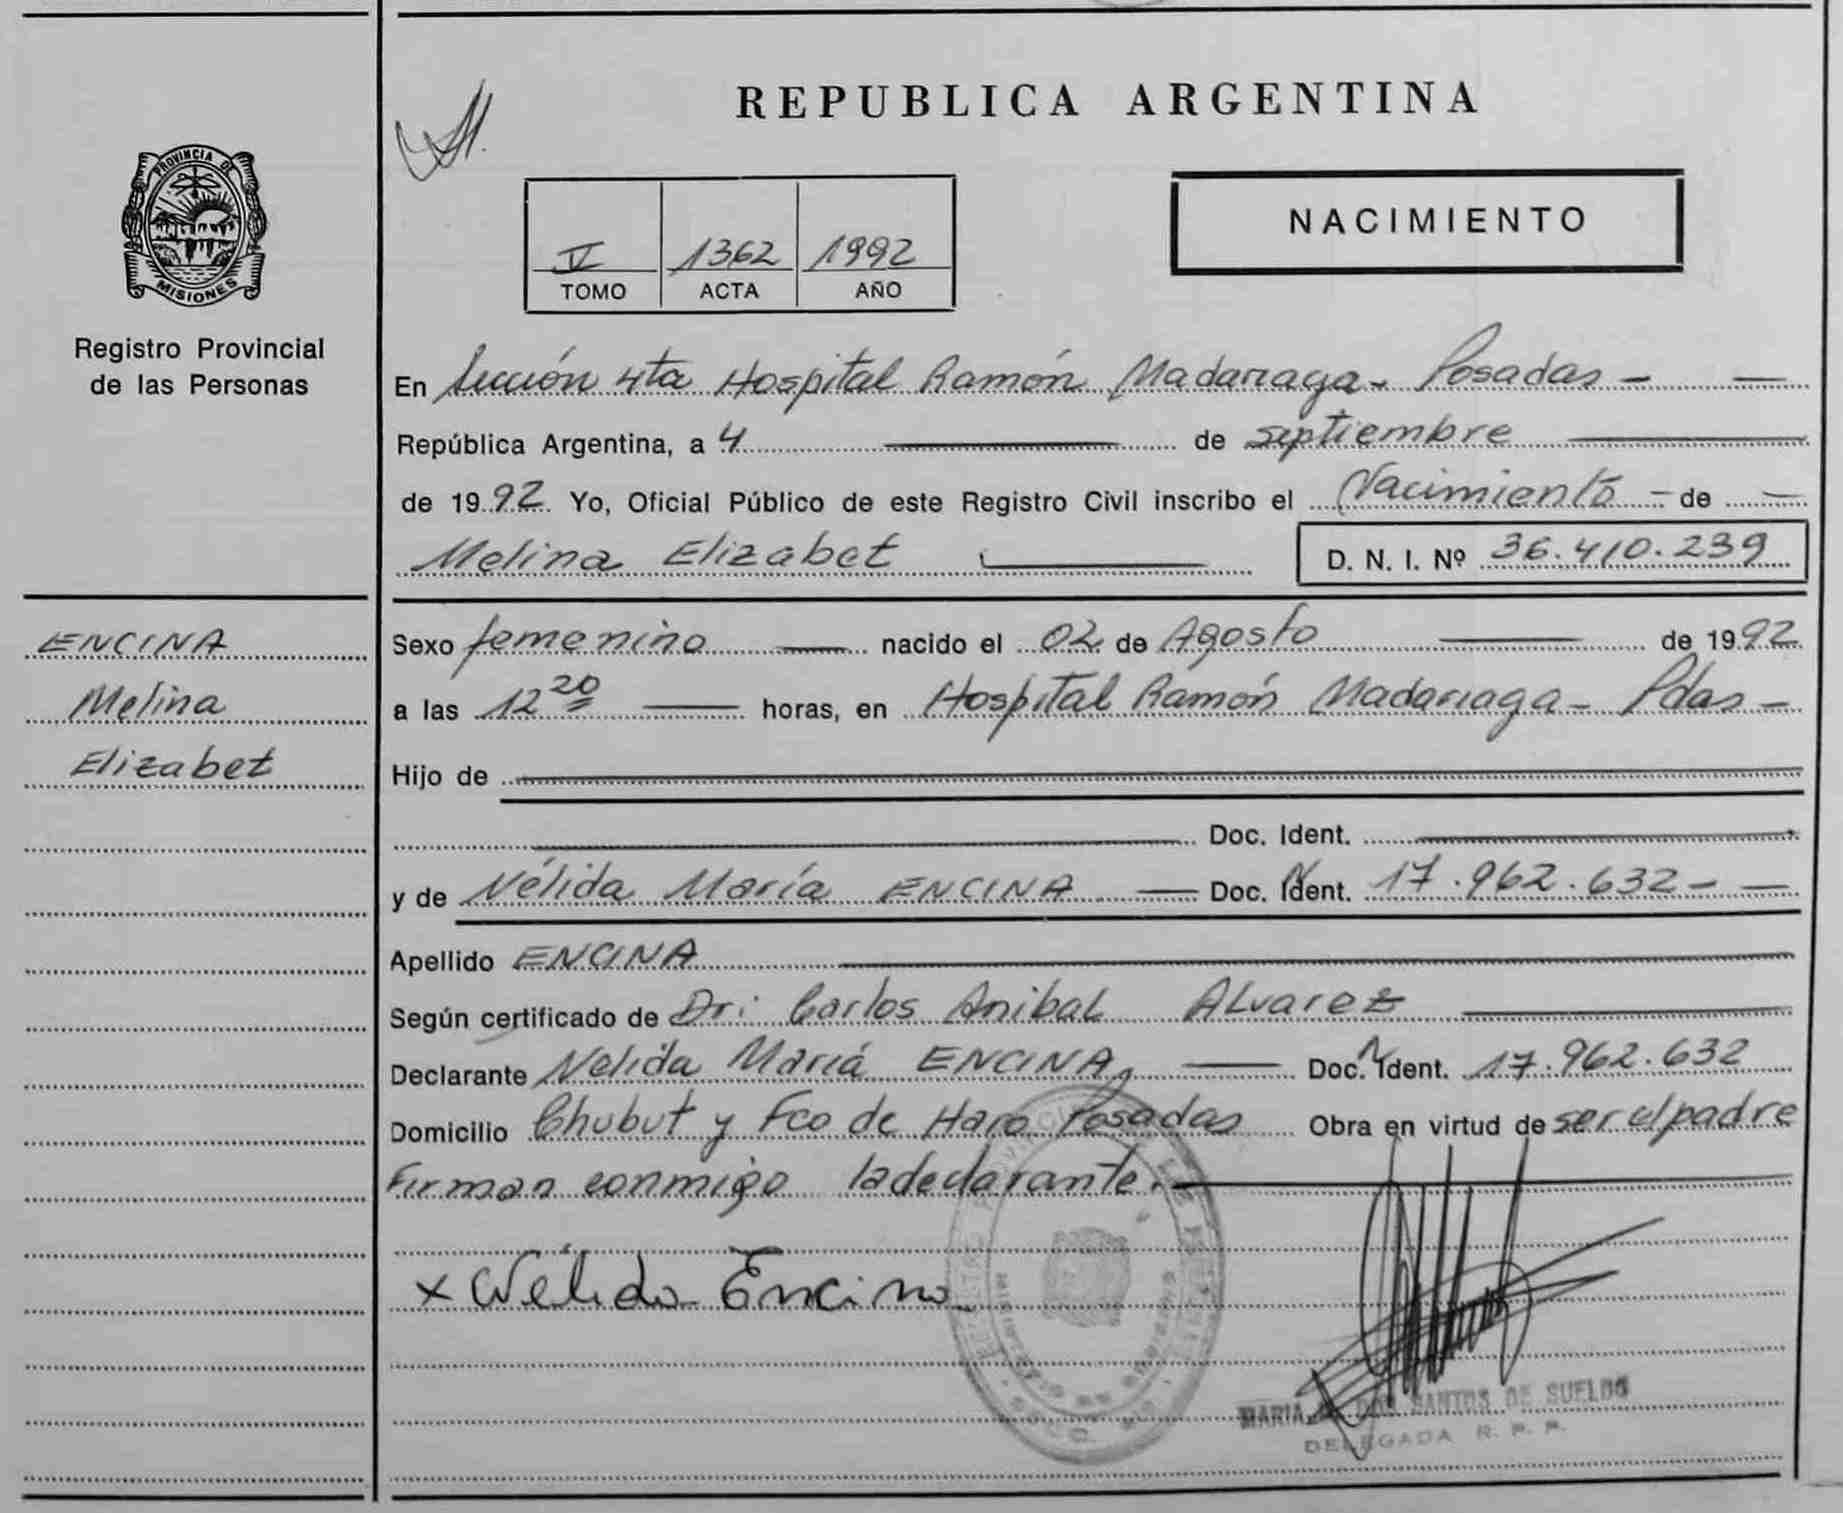 REPUBLICA ARGENTINA
PROVINCIA DE
MISIONES
Registro Provincial
de las Personas
V 1362 1992
TOMO ACTA AÑO
NACIMIENTO
En Sección 4ta Hospital Ramón Madariaga - Posadas -
República Argentina, a 4 de septiembre
de 1992 Yo, Oficial Público de este Registro Civil inscribo el Nacimiento - de
Melina Elizabet D. N. I. Nº 36.410.239
ENCINA
Melina
Elizabet
Sexo femenino nacido el 02 de Agosto de 1992
a las 12 20 horas, en Hospital Ramón Madariaga - Pdas -
Hijo de
Doc. Ident.
y de Nélida María ENCINA Doc. Ident. 17.962.632 -
Apellido ENCINA
Según certificado de Dr: Carlos Anibal Alvarez
Declarante Nelida Mariá ENCINA, Doc. Ident. 17.962.632
Domicilio Chubut y Fco de Haro Posadas Obra en virtud de ser el padre
Firman conmigo la declarante.
x Nélida Encina
MARIA DOS SANTOS DE SUELDO
DELEGADA R. P. P.